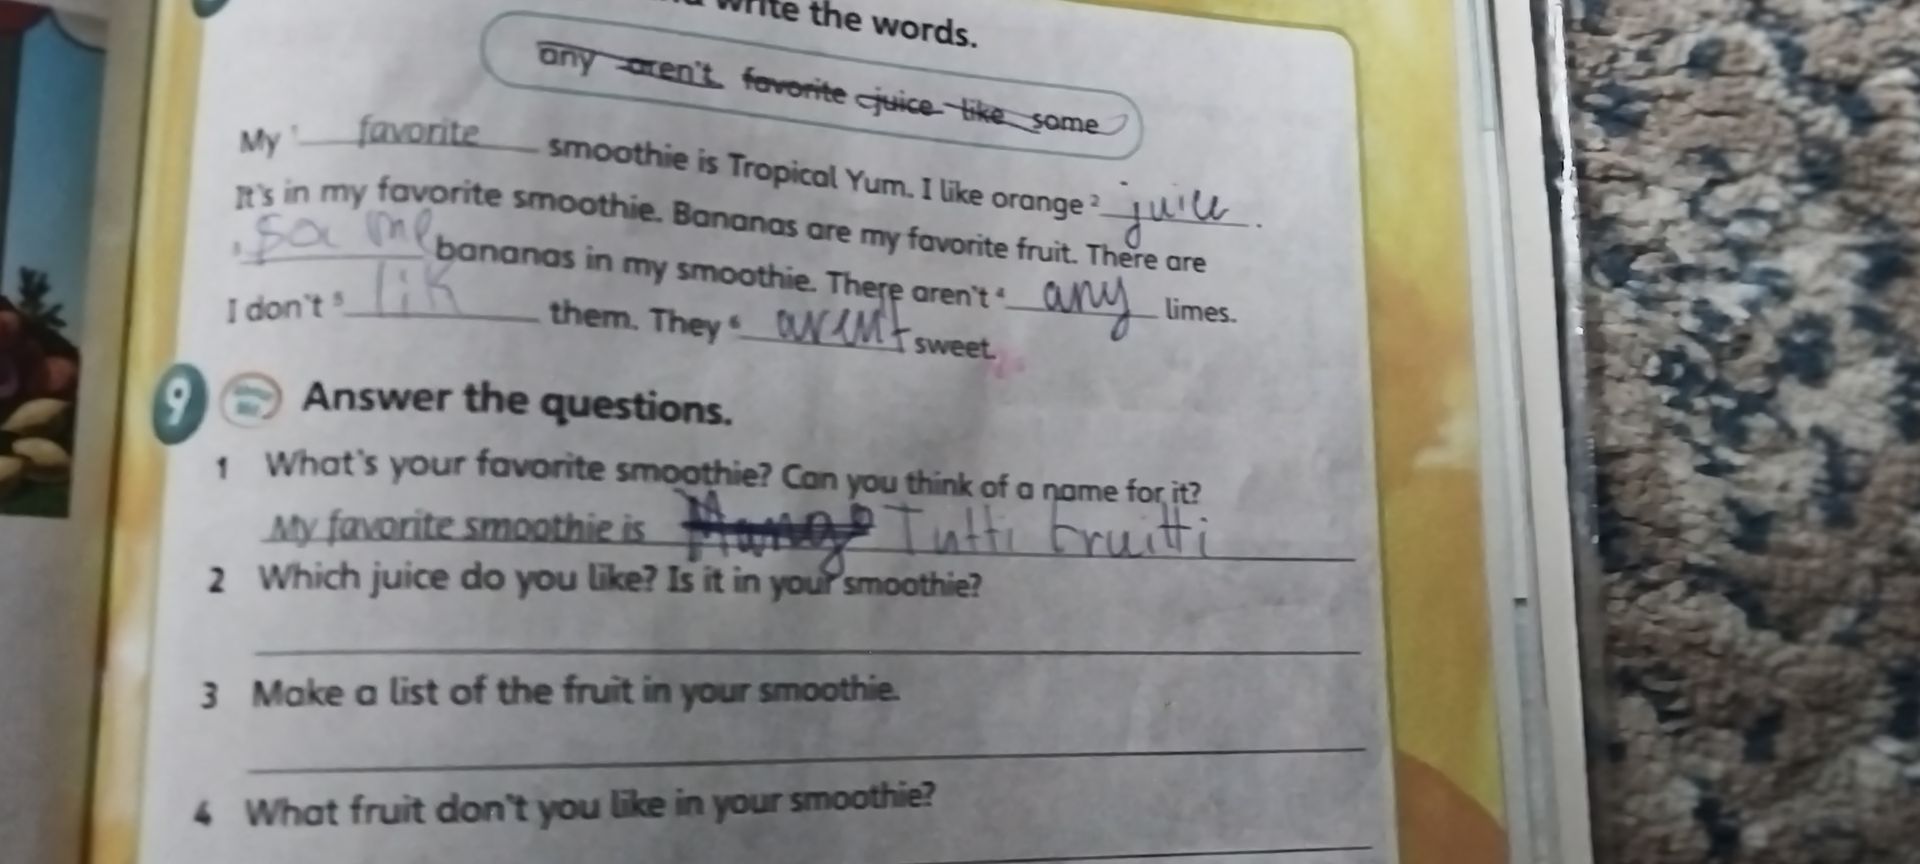 write the words.
any aren't favorite juice like some
My ¹ favorite smoothie is Tropical Yum. I like orange ² juice.
It's in my favorite smoothie. Bananas are my favorite fruit. There are
³ some bananas in my smoothie. There aren't ⁴ any limes.
I don't ⁵ lik them. They ⁶ arent sweet.
9 Answer the questions.
1 What's your favorite smoothie? Can you think of a name for it?
My favorite smoothie is Tutti Fruitti
2 Which juice do you like? Is it in your smoothie?
3 Make a list of the fruit in your smoothie.
4 What fruit don't you like in your smoothie?